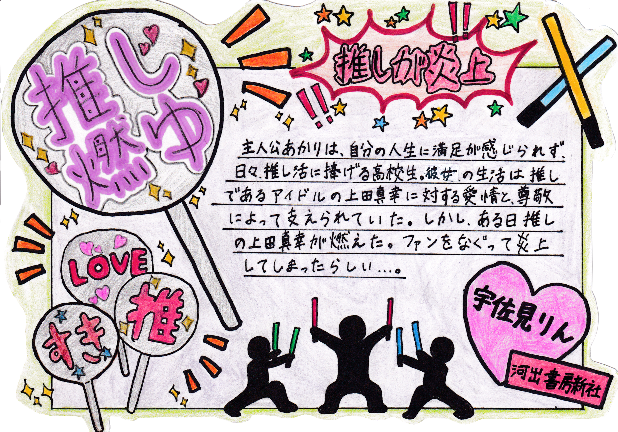 推し燃ゆ
推しが炎上
!!
!!
主人公あかりは、自分の人生に満足が感じられず、
日々、推し活に捧げる高校生。彼女の生活は推し
であるアイドルの上田真幸に対する愛情と、尊敬
によって支えられていた。しかし、ある日推し
の上田真幸が燃えた。ファンをなぐって炎上
してしまったらしい…。
LOVE
推
すき
宇佐見りん
河出書房新社